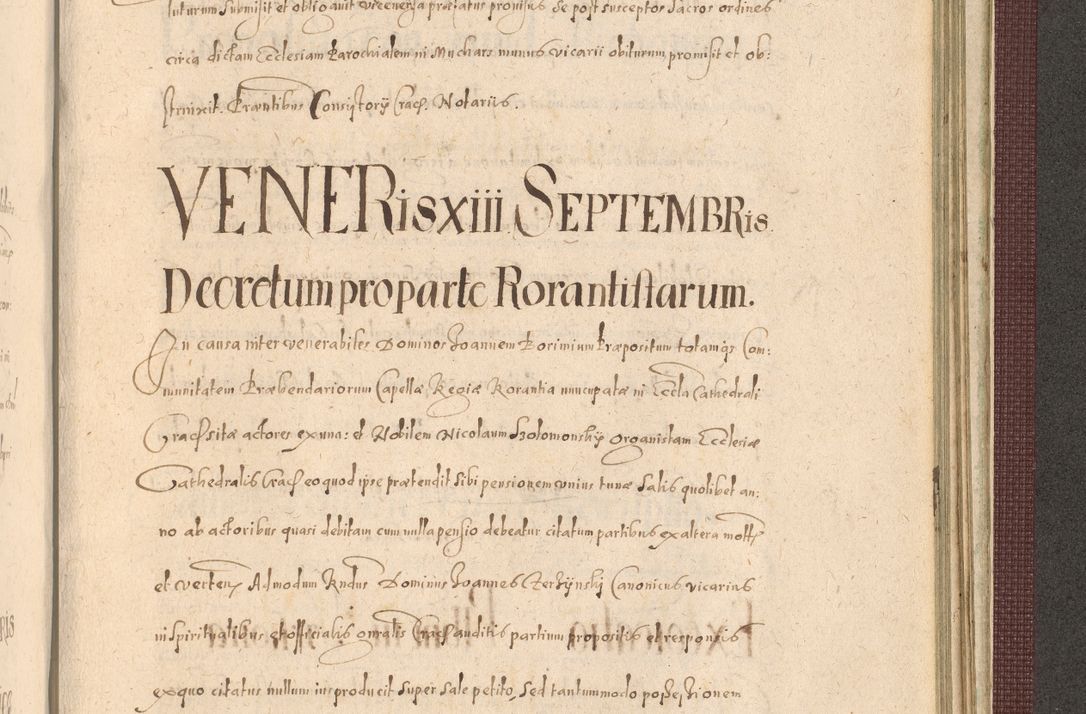 futurum submisit et obligavit viceversa præfatus promisus se post susceptos sacros ordines
circa dictam Ecclesiam Parochialem in Muchars munus vicarii obiturum, promisit et ob:
strinxit. Præntibus Consistorÿ Crac. Notariis.
VENERis xiii SEPTEMBRis.
Decretum pro parte Rorantistarum.
In causa inter venerabiles Dominos Joannem Borimium Præpositum totamqs Com:
munitatem Præbendariorum Capellæ Regiæ Rorantia nuncupatæ in Eccla Cathedrali
Crac sitæ actores ex una: et Nobilem Nicolaum Szolomonskÿ organistam Ecclesiæ
Cathedralis Crac eo quod ipse prætendit sibi pensionem unius tunæ salis quolibet an:
no ab actoribus quasi debitam cum nulla pensio debeatur citatum partibus ex altera
et verten Admodum Rndus Dominus Joannes Zerzÿnskj Canonicus vicarius
in spiritualibus et officialis gnralis Crac auditis partium propositis et responsis
ex quo citatus nullum ius producit super sale petito, sed tantummodo possessionem